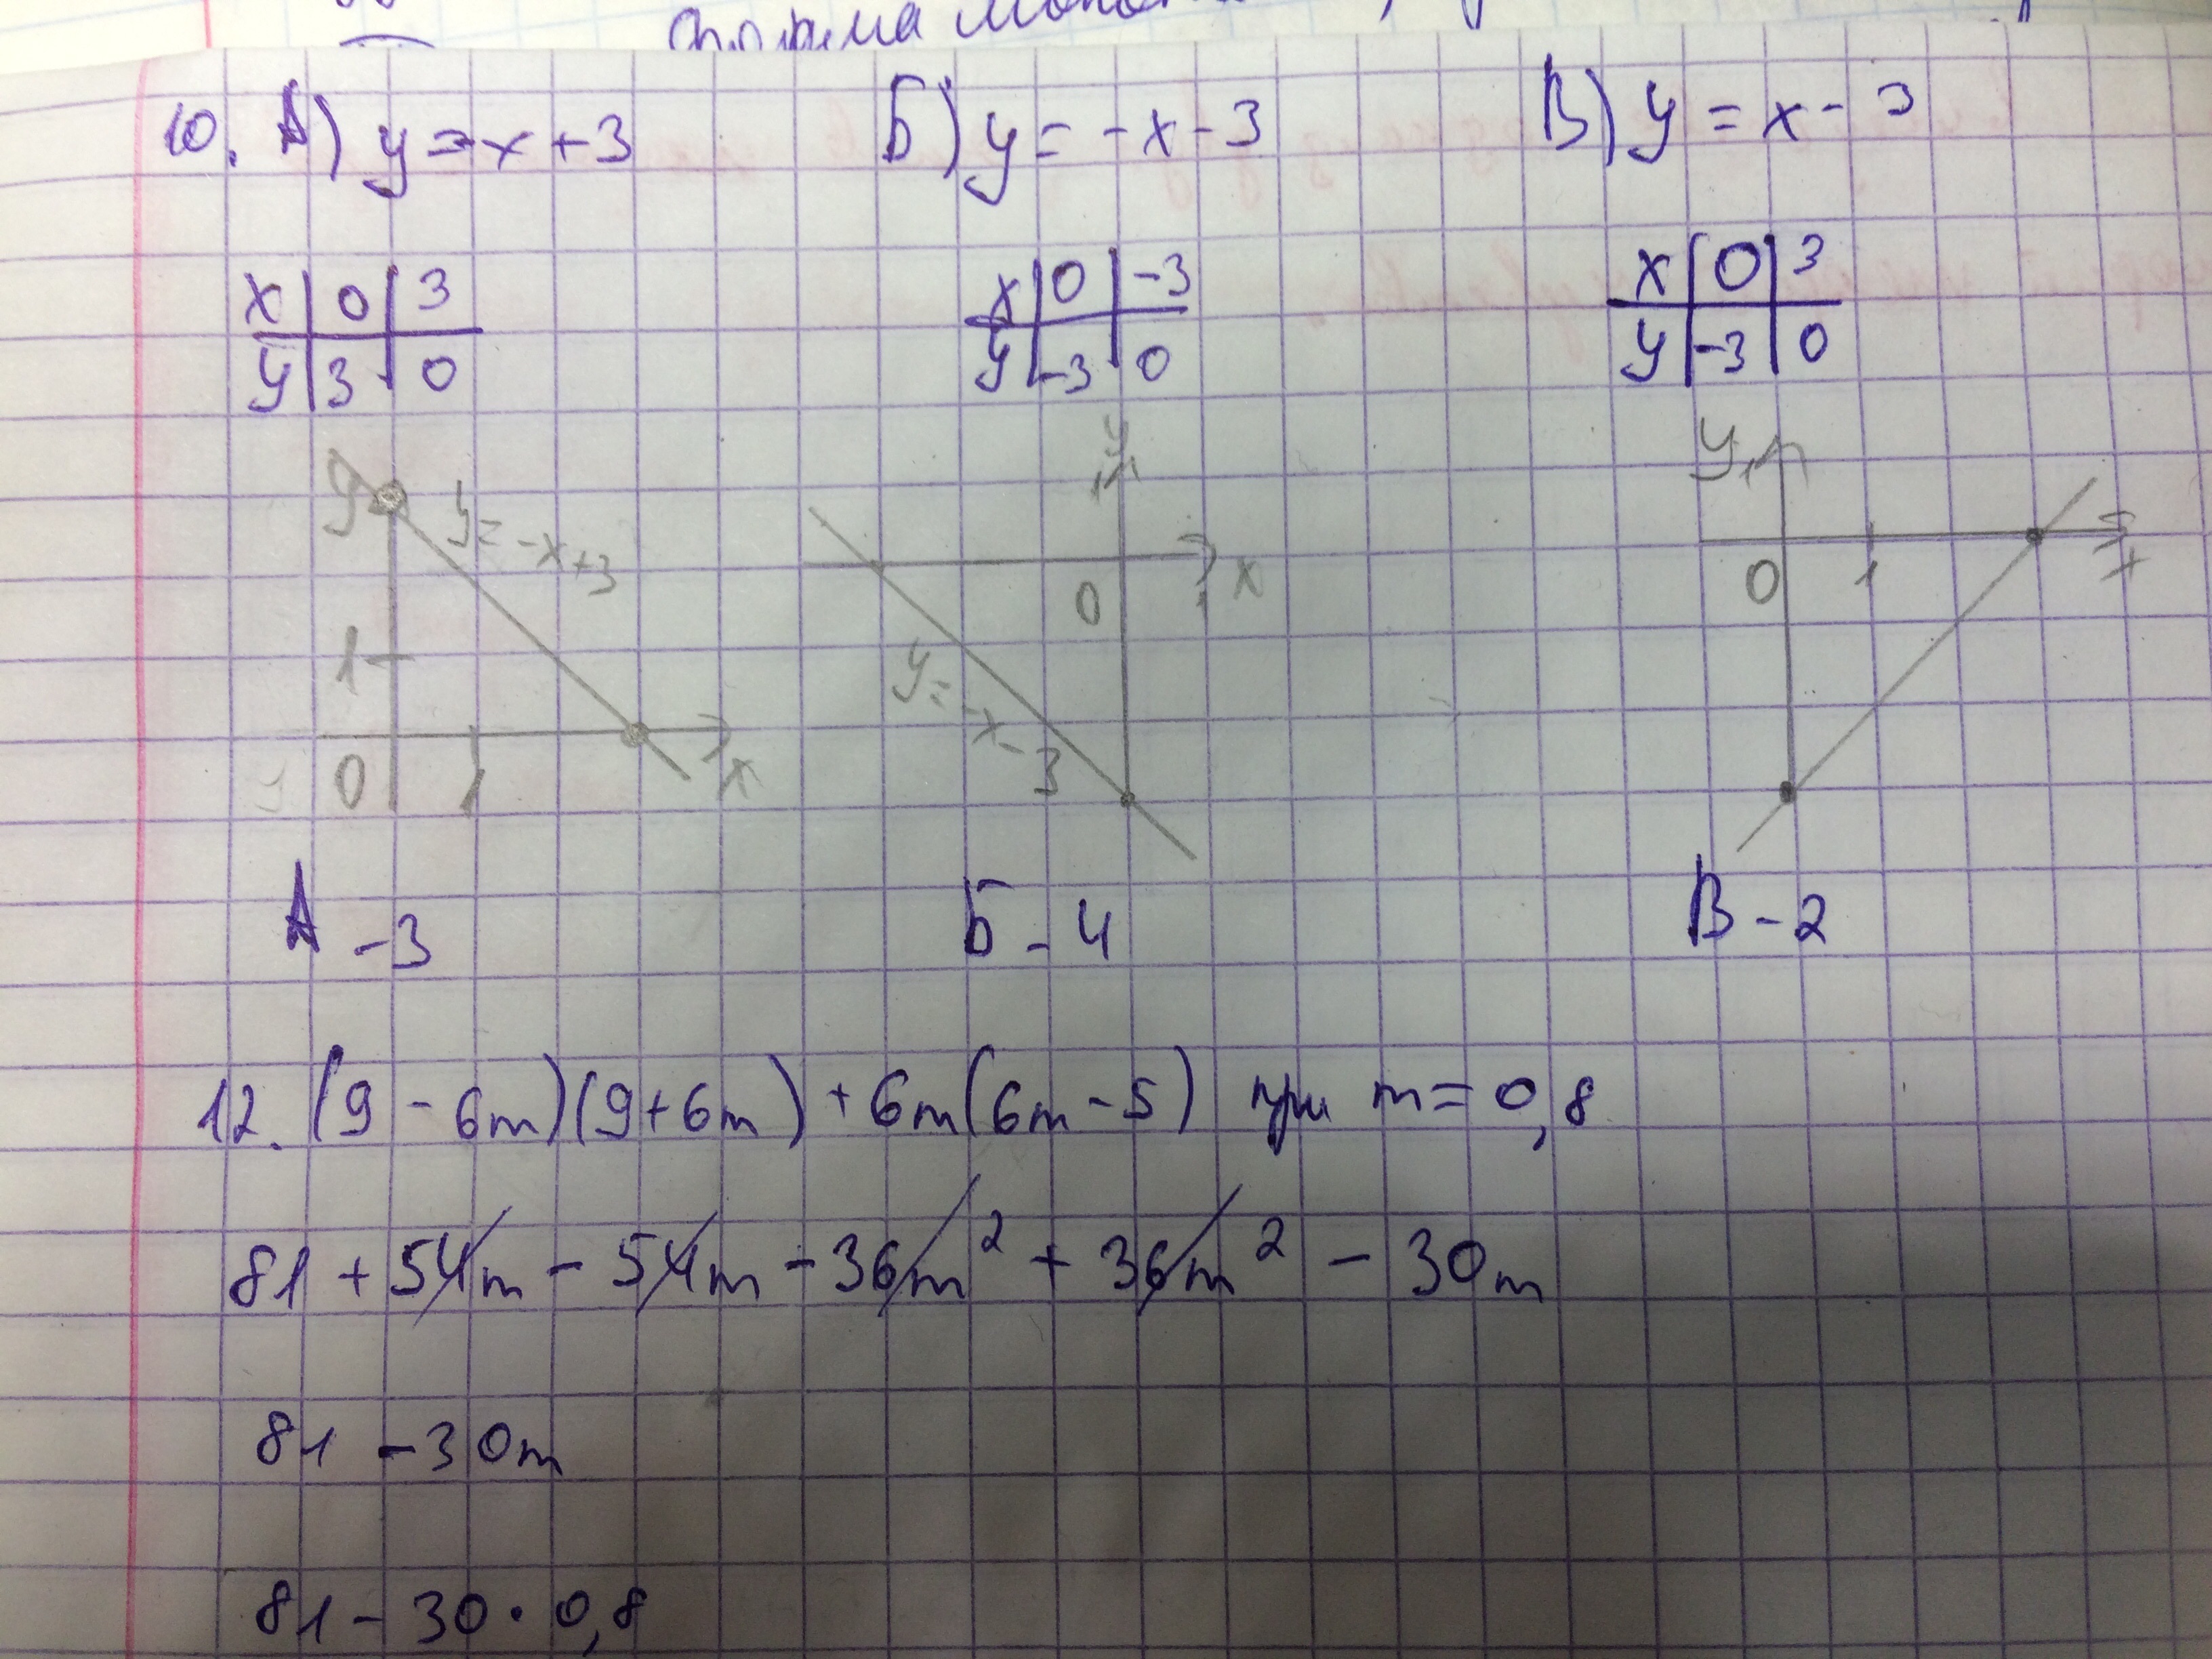 10. А) y = -x + 3 Б) y = -x - 3 В) y = x - 3
x | 0 | 3 x | 0 | -3 x | 0 | 3
y | 3 | 0 y | -3 | 0 y | -3 | 0
y y = -x + 3 y y
1
0 1 x 0 x 0 1 x
y = -x - 3
А - 3 Б - 4 В - 2
12. (9 - 6m)(9 + 6m) + 6m(6m - 5) при m = 0,8
81 + 54m - 54m - 36m² + 36m² - 30m
81 - 30m
81 - 30 · 0,8